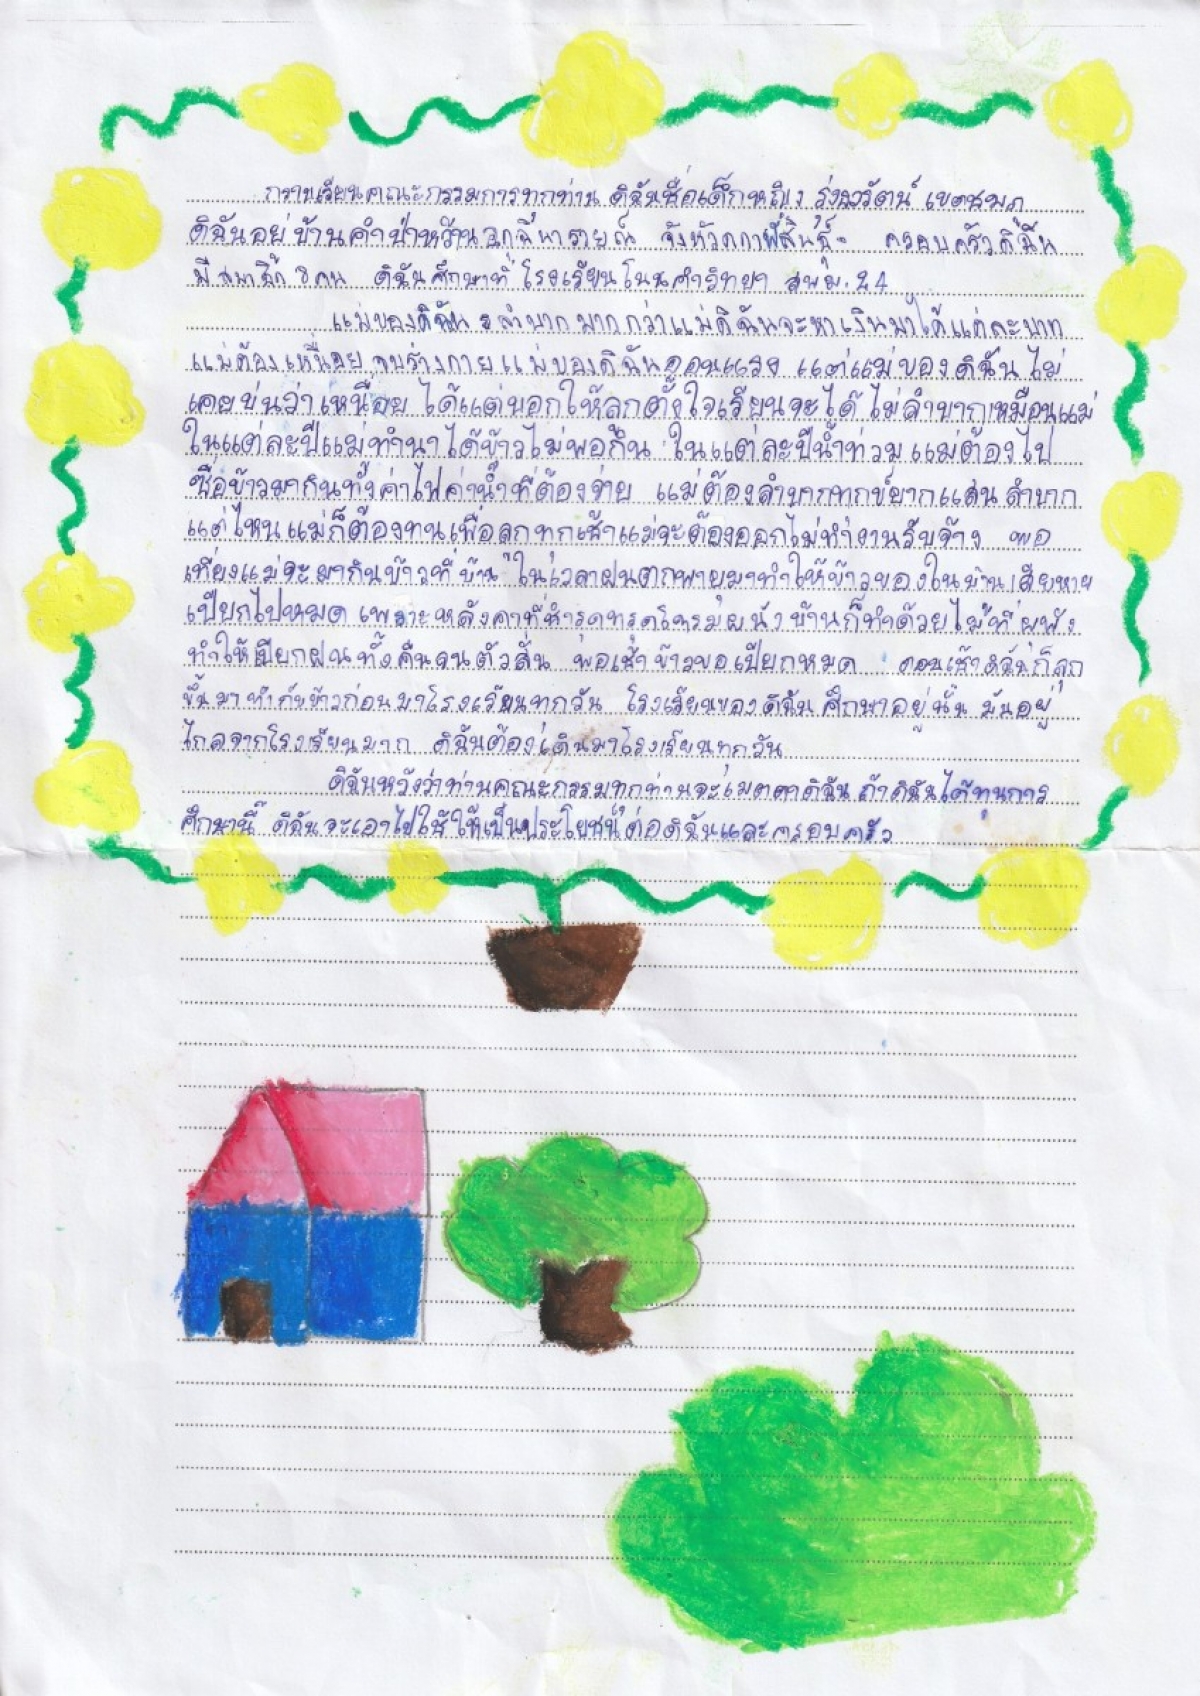 กราบเรียนคณะกรรมการทุกท่าน ดิฉันชื่อเด็กหญิง รุ่งนวรัตน์ เขตสมภ
ดิฉันอยู่บ้านคำป่าหว้าน จังหวัดกาฬสินธุ์ ครอบครัวดิฉัน
มีสมาชิก 8 คน ดิฉันศึกษาที่ โรงเรียนโนนคำวิทยา สพม.24
แม่ของดิฉัน ลำบากมากกว่าแม่ดิฉันจะหาเงินมาได้แต่ละบาท
แม่ต้องเหนื่อย จนร่างกายแม่ของดิฉันอ่อนแรง แต่แม่ของดิฉันไม่
เคยบ่นว่าเหนื่อย ได้แต่บอกให้ลูกตั้งใจเรียนจะได้ไม่ลำบากเหมือนแม่
ในแต่ละปีแม่ทำนาได้ข้าวไม่พอกิน ในแต่ละปีน้ำท่วมแม่ต้องไป
ซื้อข้าวมากินทั้งค่าไฟค่าน้ำที่ต้องจ่าย แม่ต้องลำบากทุกข์ยากแสนลำบาก
แต่ไหนแม่ก็ต้องทนเพื่อลูกทุกเช้าแม่จะต้องออกไม่ทำงานรับจ้าง พอ
เที่ยงแม่จะมากินข้าวที่บ้าน ในเวลาฝนตกพายุมาทำให้ข้าวของในบ้านเสียหาย
เปียกไปหมด เพราะหลังคาที่ชำรุดทรุดโทรมผนังบ้านก็ทำด้วยไม้ที่ผุพัง
ทำให้เปียกฝนทั้งคืนจนตัวสั่น พอเช้าข้าวของเปียกหมด ตอนเช้าดิฉันก็ลุก
ขึ้นมาทำกับข้าวก่อนมาโรงเรียนทุกวัน โรงเรียนของดิฉันศึกษาอยู่นั้น มันอยู่
ไกลจากโรงเรียนมาก ดิฉันต้องเดินมาโรงเรียนทุกวัน
ดิฉันหวังว่าท่านคณะกรรมทุกท่านจะเมตตาดิฉัน ถ้าดิฉันได้ทุนการ
ศึกษานี้ ดิฉันจะเอาไปใช้ให้เป็นประโยชน์ต่อดิฉันและครอบครัว